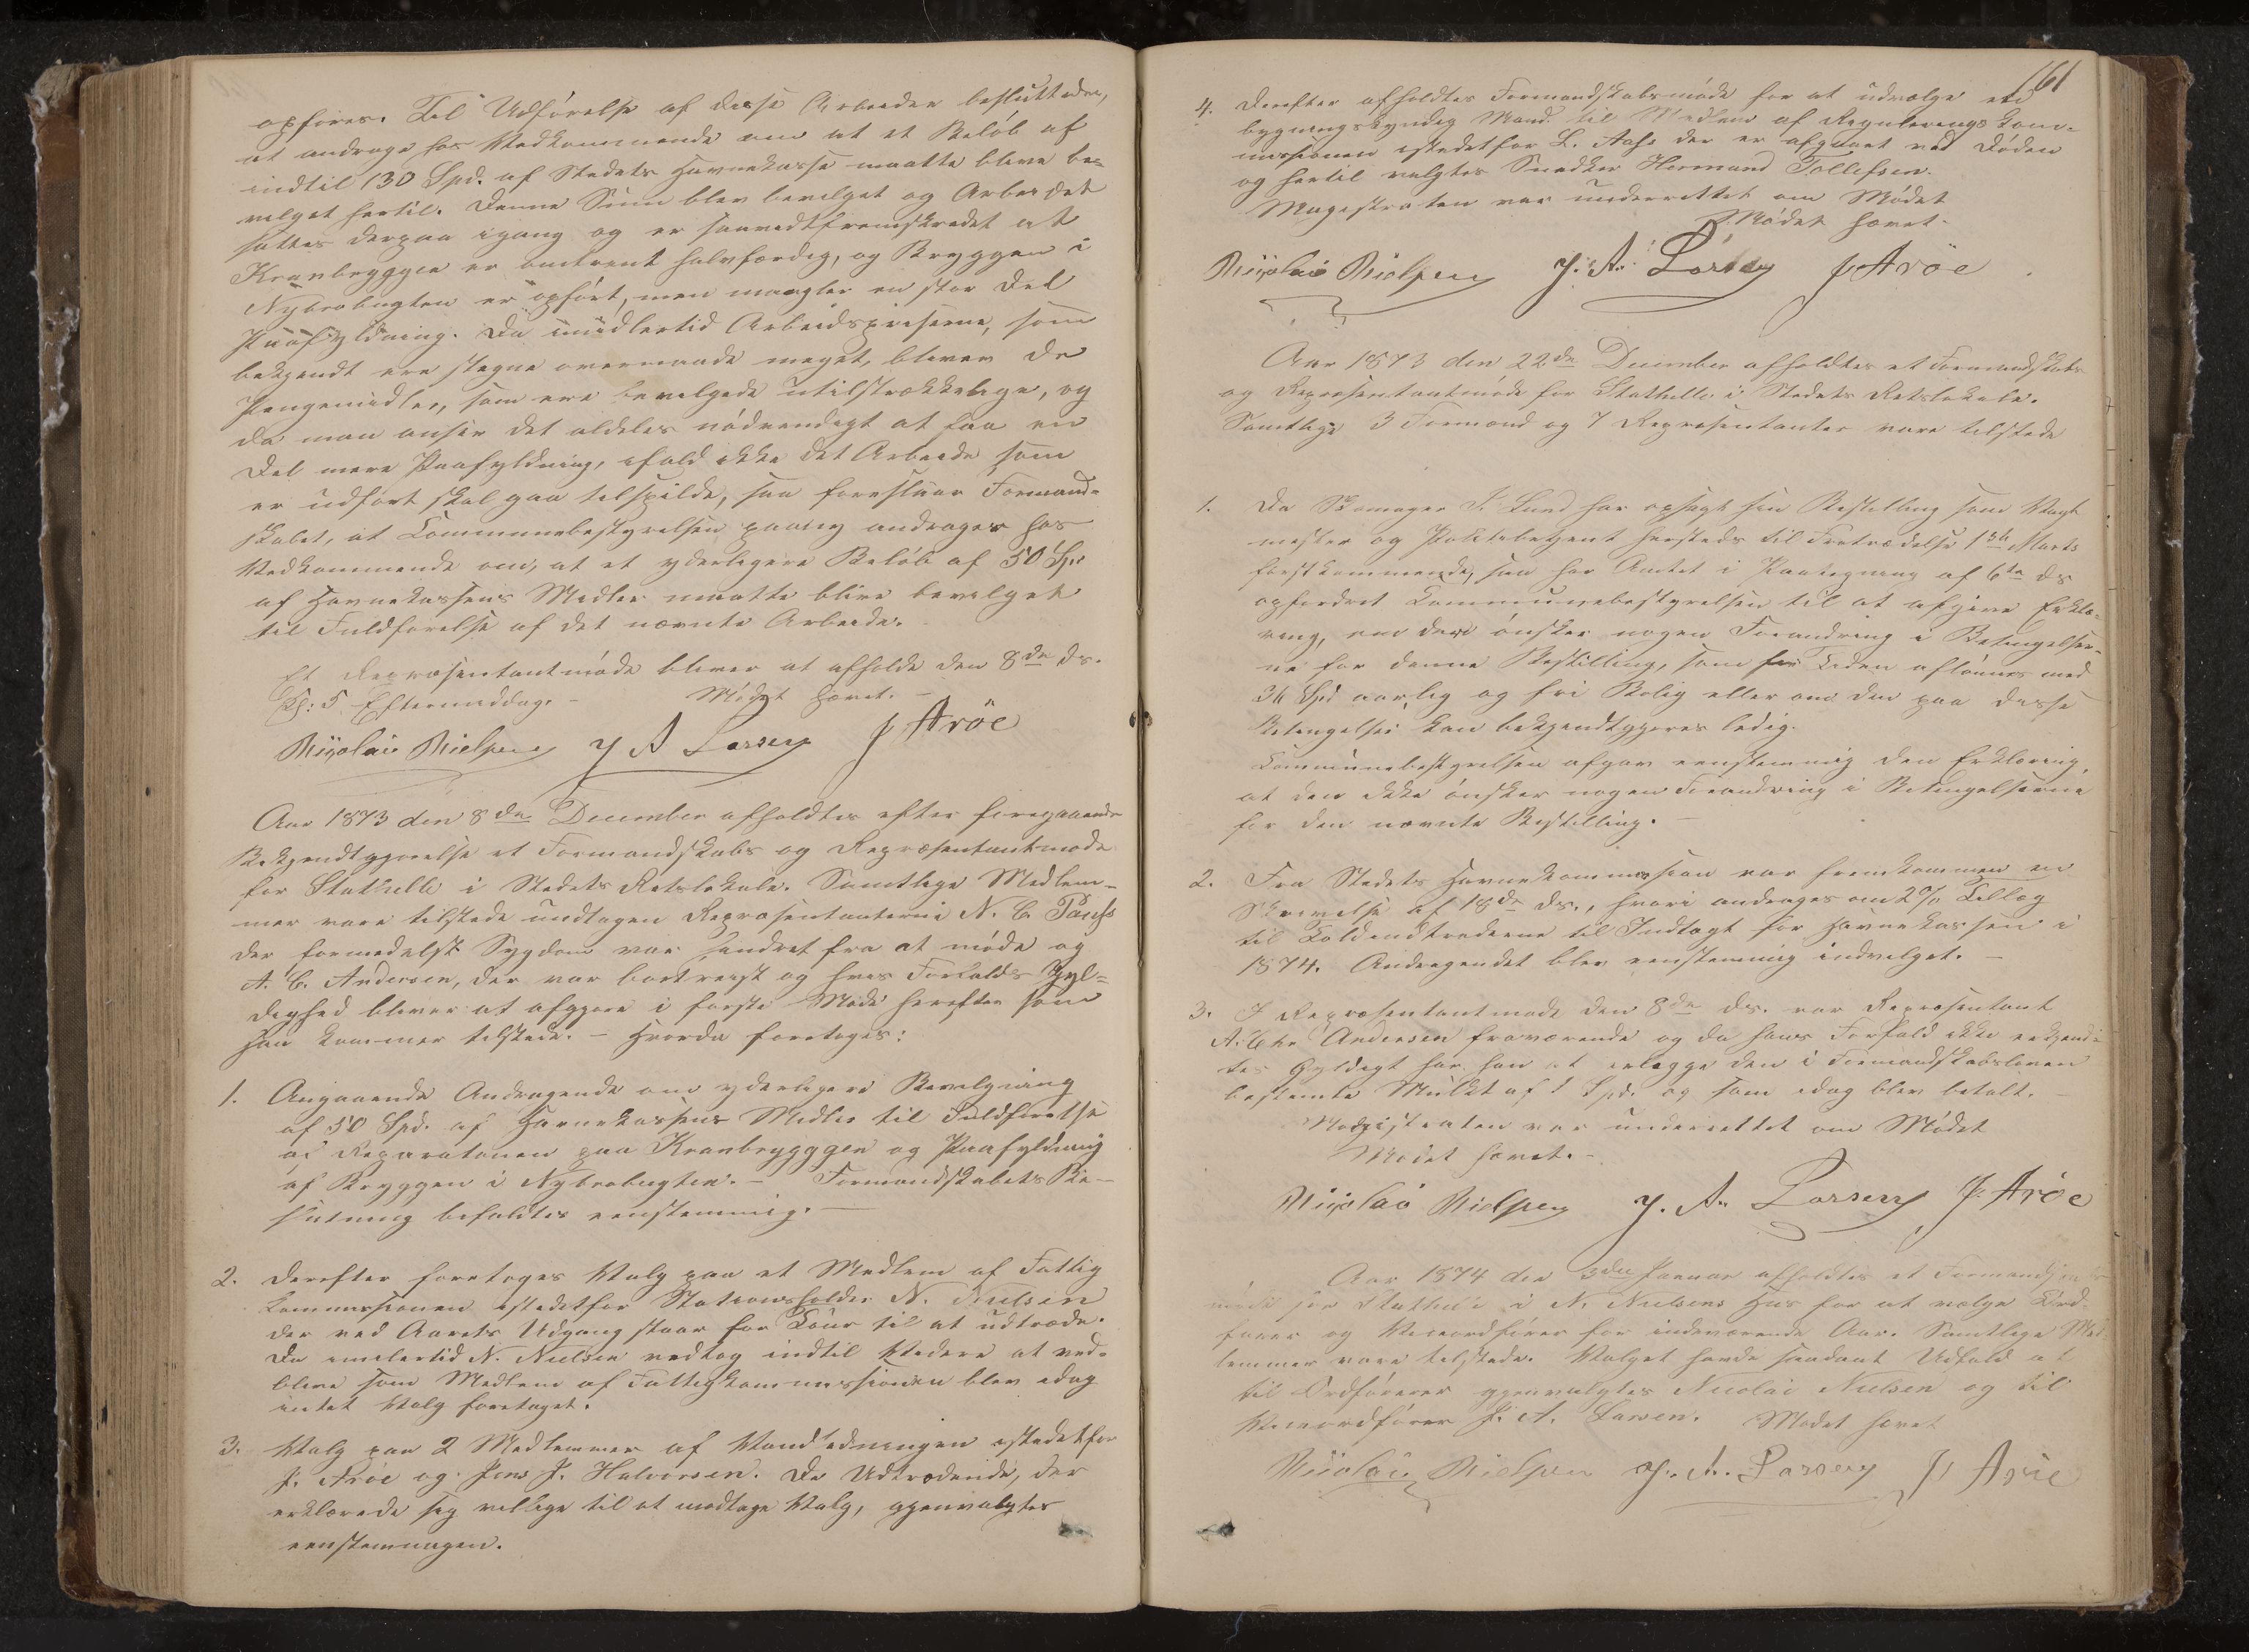 opføres. Til Udførelse af disse Arbeider besluttedes,
at andrage hos Vedkommende om at et Beløb af
indtil 130 Spd. af Stedets Havnekasse maatte blive be-
vilget hertil. Denne Sum blev bevilget og Arbeidet
sattes derpaa igang og er saavidt fremskredet at
Kranbryggen er omtrent halvfærdig, og Bryggen i
Nybrobugten er opført, men mangler en stor Del
Paafyldning. Da imidlertid Arbeidspriserne, som
bekjendt ere stegne overmaade meget, bliver de
Pengemidler, som ere bevilgede utilstrækkelige, og
da man anser det aldeles nødvendigt at faa en
Del mere Paafyldning, ifald ikke det Arbeide som
er udført skal gaa tilspilde, saa foreslaar Formand-
skabet, at Communebestyrelsen paany andrager hos
Vedkommende om, at et yderligere Beløb af 50 Spd
af Havnekassens Midler maatte blive bevilget
til Fuldførelse af det nævnte Arbeide.
Et Repræsentantmøde bliver at afholde den 8de ds.
Kl: 5 Eftermiddag. - Mødet hævet. -
Nicolai Nielsen J A Larsen J Arøe
Aar 1873 den 8de December afholdtes efter foregaaende
Bekjendtgjørelse et Formandskabs og Repræsentantmøde
for Stathelle i Stedets Retslokale. Samtlige Medlem-
mer vare tilstede undtagen Repræsentanterne N. C. Pauss
der formedelst Sygdom var hindret fra at møde og
A. C. Andersen, der var bortreist og hvis Forfalds Gyl-
dighed bliver at afgjøre i første Møde herefter som
han kommer tilstede. - Hvorda foretoges:
1. Angaaende Andragende om yderligere Bevilgning
af 50 Spd. af Havnekassens Midler til Fuldførelse
af Reparationen paa Kranbryggen og Paafyldning
af Bryggen i Nybrobugten. - Formandskabets Be-
slutning bifaldtes eenstemmig. -
2. Derefter foretoges Valg paa et Medlem af Fattig
kommissionen istedetfor Stationsholder N. Nielsen
der ved Aarets Udgang staar for Tour til at udtræde.
Da imidlertid N. Nielsen vedtog indtil Videre at ved-
blive som Medlem af Fattigkommissionen blev idag
intet Valg foretaget.
3. Valg paa 2 Medlemmer af Vandledningen istedetfor
J. Arøe og Jens J. Halvorsen. De Udtrædende, der
erklærede sig villige til at modtage Valg, gjenvalgtes
eenstemmigen.
161
4. Derefter afholdtes Formandskabsmøde for at udvælge en
bygningskyndig Mand til Medlem af Reguleringskom-
missionen istedetfor L. Aass der er afgaaet ved Døden
og hertil valgtes Snedker Hermand Tollefsen.
Magistraten var underrettet om Mødet
Mødet hævet.
Nicolai Nielsen J. A. Larsen J Arøe
Aar 1873 den 22de December afholdtes et Formandskabs
og Repræsentantmøde for Stathelle i Stedets Retslokale.
Samtlige 3 Formænd og 7 Repræsentanter vare tilstede
1. Da Skomager J. Lund har opsagt sin Bestilling som Vagt
mester og Politibetjent hersteds til Fratrædelse 1ste Marts
førstkommende, saa har Amtet i Paategning af 6te ds
opfordret Kommunebestyrelsen til at afgive Erklæ-
ring, om den ønsker nogen Forandring i Betingelser-
ne for denne Bestilling, som for Tiden aflønnes med
36 Spd aarlig og fri Bolig eller om den paa disse
Betingelser kan bekjendtgjøres ledig.
Communebestyrelsen afgav eenstemmig den Erklæring,
at den ikke ønsker nogen Forandring i Betingelserne
for den nævnte Bestilling. -
2. Fra Stedets Havnekommission var fremkommen en
Skrivelse af 18de ds., hvori andrages om 2% Tillæg
til Toldindtræderne til Indtægt for Havnekassen i
1874. Andragendet blev eenstemmig indvilget. -
3. I Repræsentantmøde den 8de ds. var Repræsentant
A. Chr Andersen fraværende og da hans Forfald ikke erkjend-
tes Gyldigt har han at erlægge den i Formandskabsloven
bestemte Mulkt af 1 Spd. og som idag blev betalt. -
Magistraten var underrettet om Mødet
Mødet hævet. -
Nicolai Nielsen J. A. Larsen J. Arøe
Aar 1874 den 3die Januar afholdtes et
møde for Stathelle i N. Nielsens Hus for at vælge Ord-
fører og Viceordfører for indeværende Aar. Samtlige Med
lemmer vare tilstede. Valget havde saadant Udfald at
til Ordfører gjenvalgtes Nicolai Nielsen og til
Viceordfører J. A. Larsen. Mødet hævet
Nicolai Nielsen J. A. Larsen J Arøe